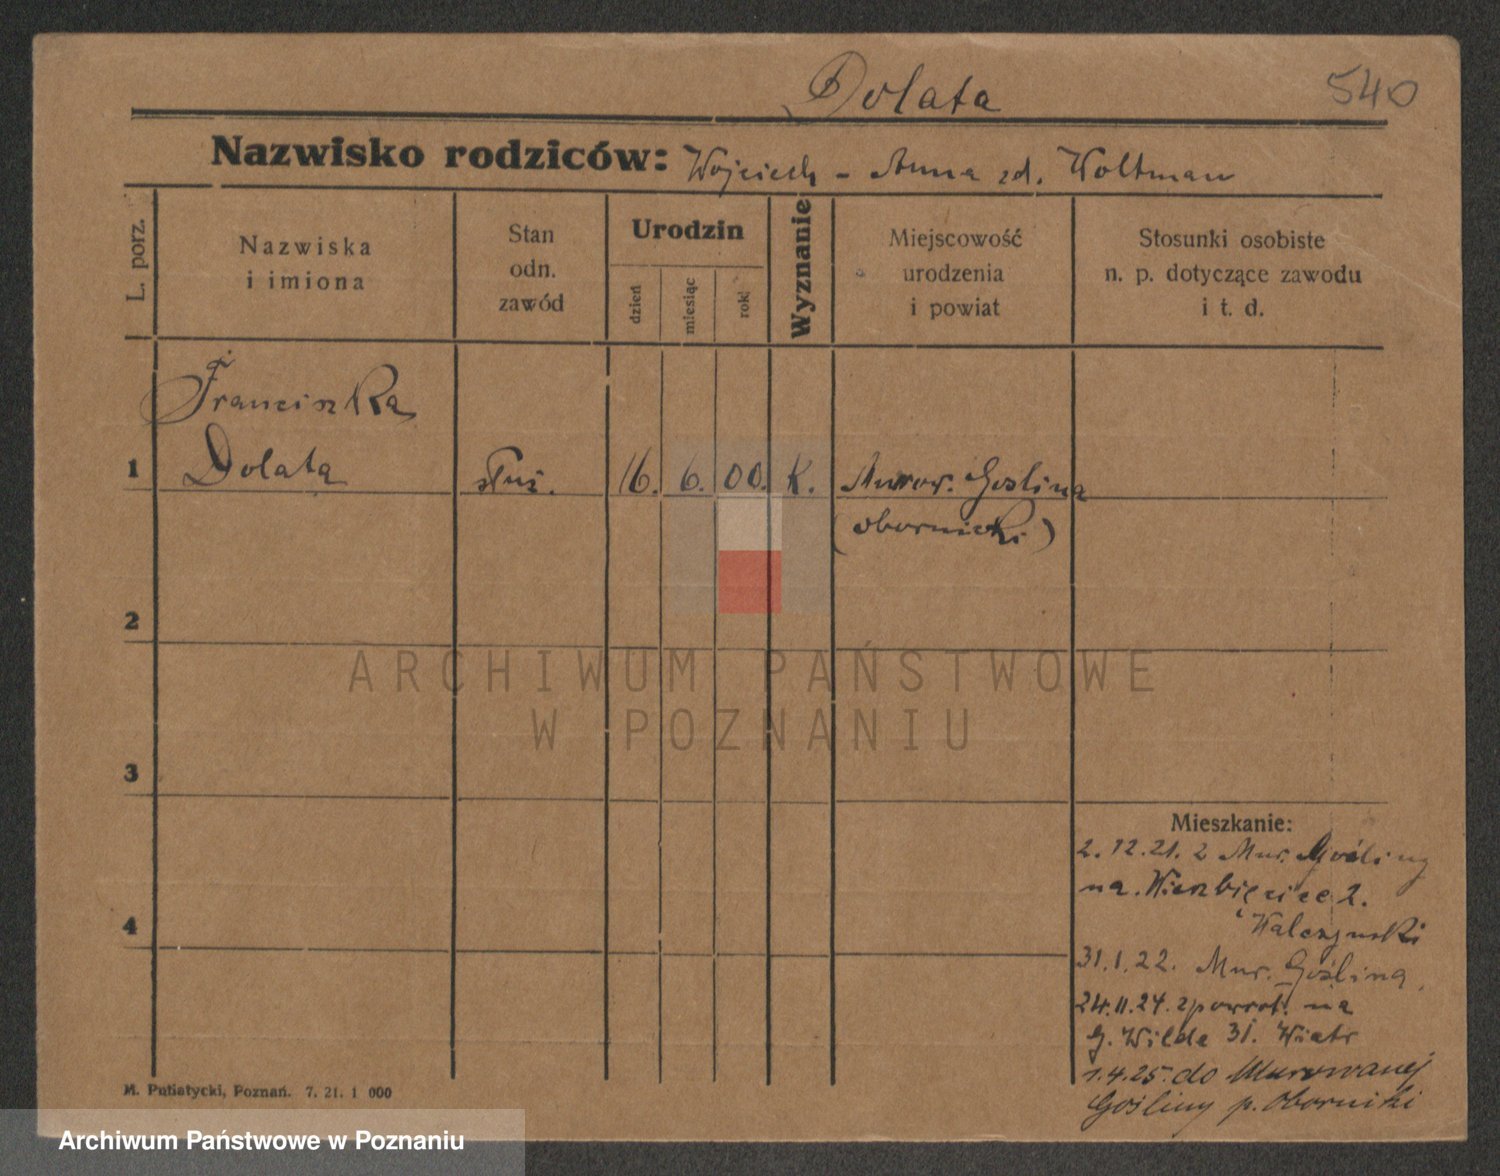 Dolata
540
Nazwisko rodziców: Wojciech - Anna zd. Woltman
L. porz.
Nazwiska
i imiona
Stan
odn.
zawód
Urodzin
dzień
miesiąc
rok
Wyznanie
Miejscowość
urodzenia
i powiat
Stosunki osobiste
n. p. dotyczące zawodu
i t. d.
Franciszka
1 Dolata służ. 16. 6. 00. K. Murow. Goślina
(obornicki)
2
ARCHIWUM PAŃSTWOWE
W POZNANIU
3
Mieszkanie:
2. 12. 21. z Mur. Gośliny
na Wierzbięcice 2.
Walczynski
4
31. 1. 22. Mur. Goślina.
24. 11. 24. zpowrot. na
G. Wilda 31. Wiatr
1. 4. 25. do Murowanej
Gośliny p. Oborniki
M. Putiatycki, Poznań. 7. 21. 1 000
Archiwum Państwowe w Poznaniu